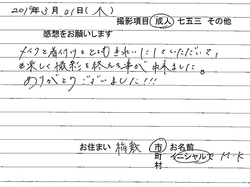 2019年3月21日(木)
撮影項目 成人 七五三 その他
感想をお願いします
メイクと着付けもとてもきれいにしていただいて、
楽しく撮影を終える事が出来ました。
ありがとうございました!!!
お住まい 稲敷 市 お名前
町 イニシャルで M・K
村